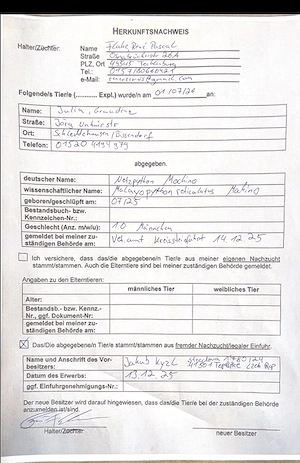 HERKUNFTSNACHWEIS
Halter/Züchter: Name Pascal
Straße
PLZ, Ort 49545 Tecklenburg
Tel.:
e-Mail:
Folgende/s Tier/e (............ Expl.) wurde/n am 01/07/26 an:
Name: Julia,
Straße:
Ort: Bissendorf
Telefon: 01520 4194979
abgegeben.
deutscher Name: Netzpython
wissenschaftlicher Name: Malayopython reticulatus
geboren/geschlüpft am: 07/25
Bestandsbuch- bzw.
Kennzeichen-Nr.:
Geschlecht (Anz. m/w/u): 1.0 Männchen
gemeldet bei meiner zu- Vet.amt 14.12.25
ständigen Behörde am:
Ich versichere, dass das/die abgegebene/n Tier/e aus meiner eigenen Nachzucht
stammt/stammen. Auch die Elterntiere sind bei meiner zuständigen Behörde gemeldet.
Angaben zu den Elterntieren:
männliches Tier weibliches Tier
Alter:
Bestandsb.- bzw. Kennz.-
Nr., ggf. Dokument-Nr:
gemeldet bei meiner zu-
ständigen Behörde am:
Das/Die abgegebene/n Tier/e stammt/stammen aus fremder Nachzucht/legaler Einfuhr.
Name und Anschrift des Vor- Jakub
besitzers: 41501 Teplice
Datum des Erwerbs: 13.12.25
ggf. Einfuhrgenehmigungs-Nr.:
Der neue Besitzer wird darauf hingewiesen, dass das/die Tier/e bei der zuständigen Behörde
anzumelden ist/sind.
Halter/Züchter neuer Besitzer